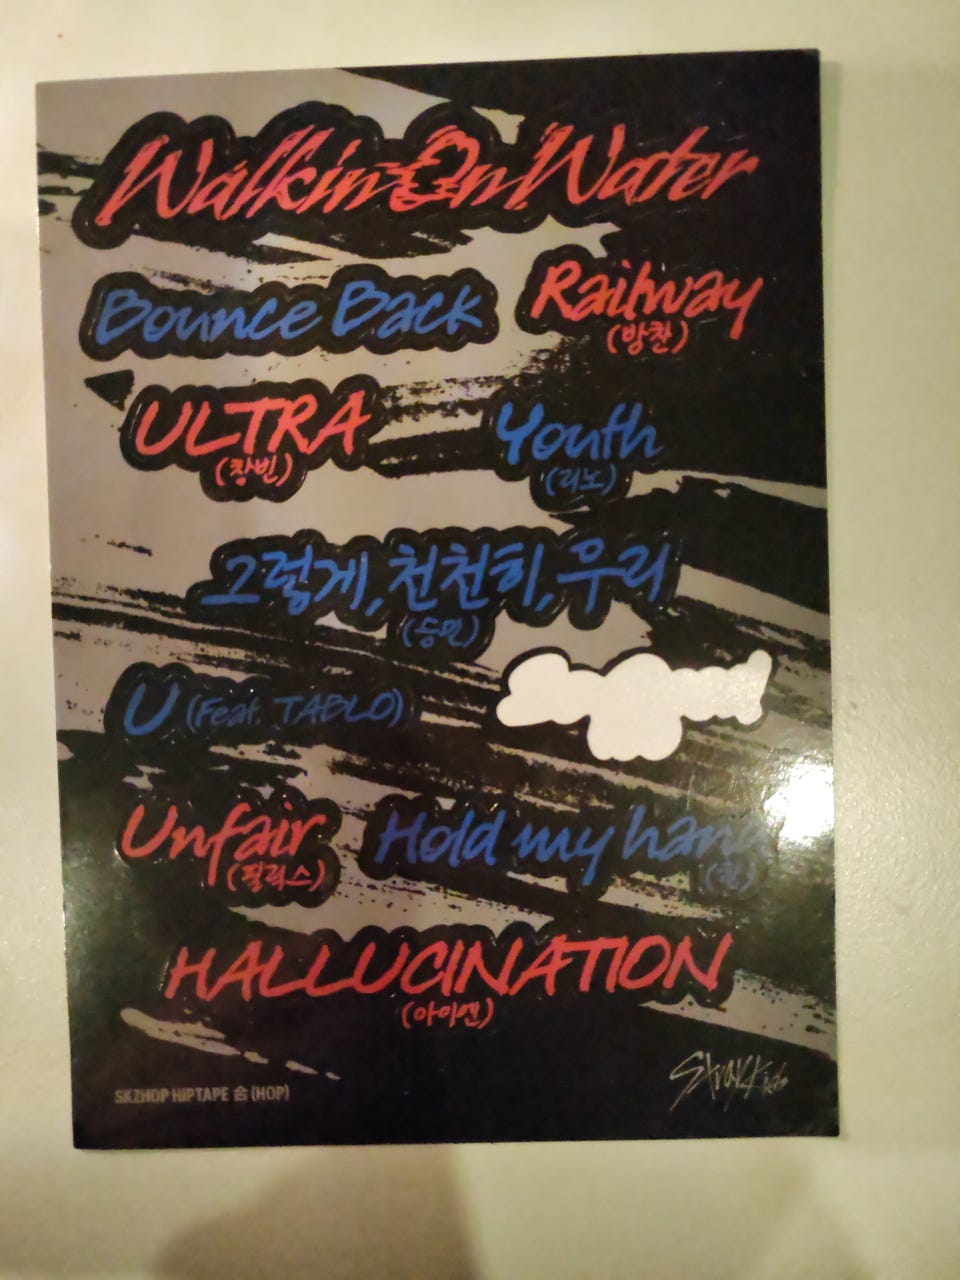 Walkin On Water
Bounce Back
Railway
(방찬)
ULTRA
(창빈)
Youth
(리노)
그렇게, 천천히, 우리
(승민)
U (Feat. TABLO)
Unfair
(필릭스)
Hold my hand
(한)
HALLUCINATION
(아이엔)
SKZHOP HIPTAPE 合 (HOP)
Stray Kids